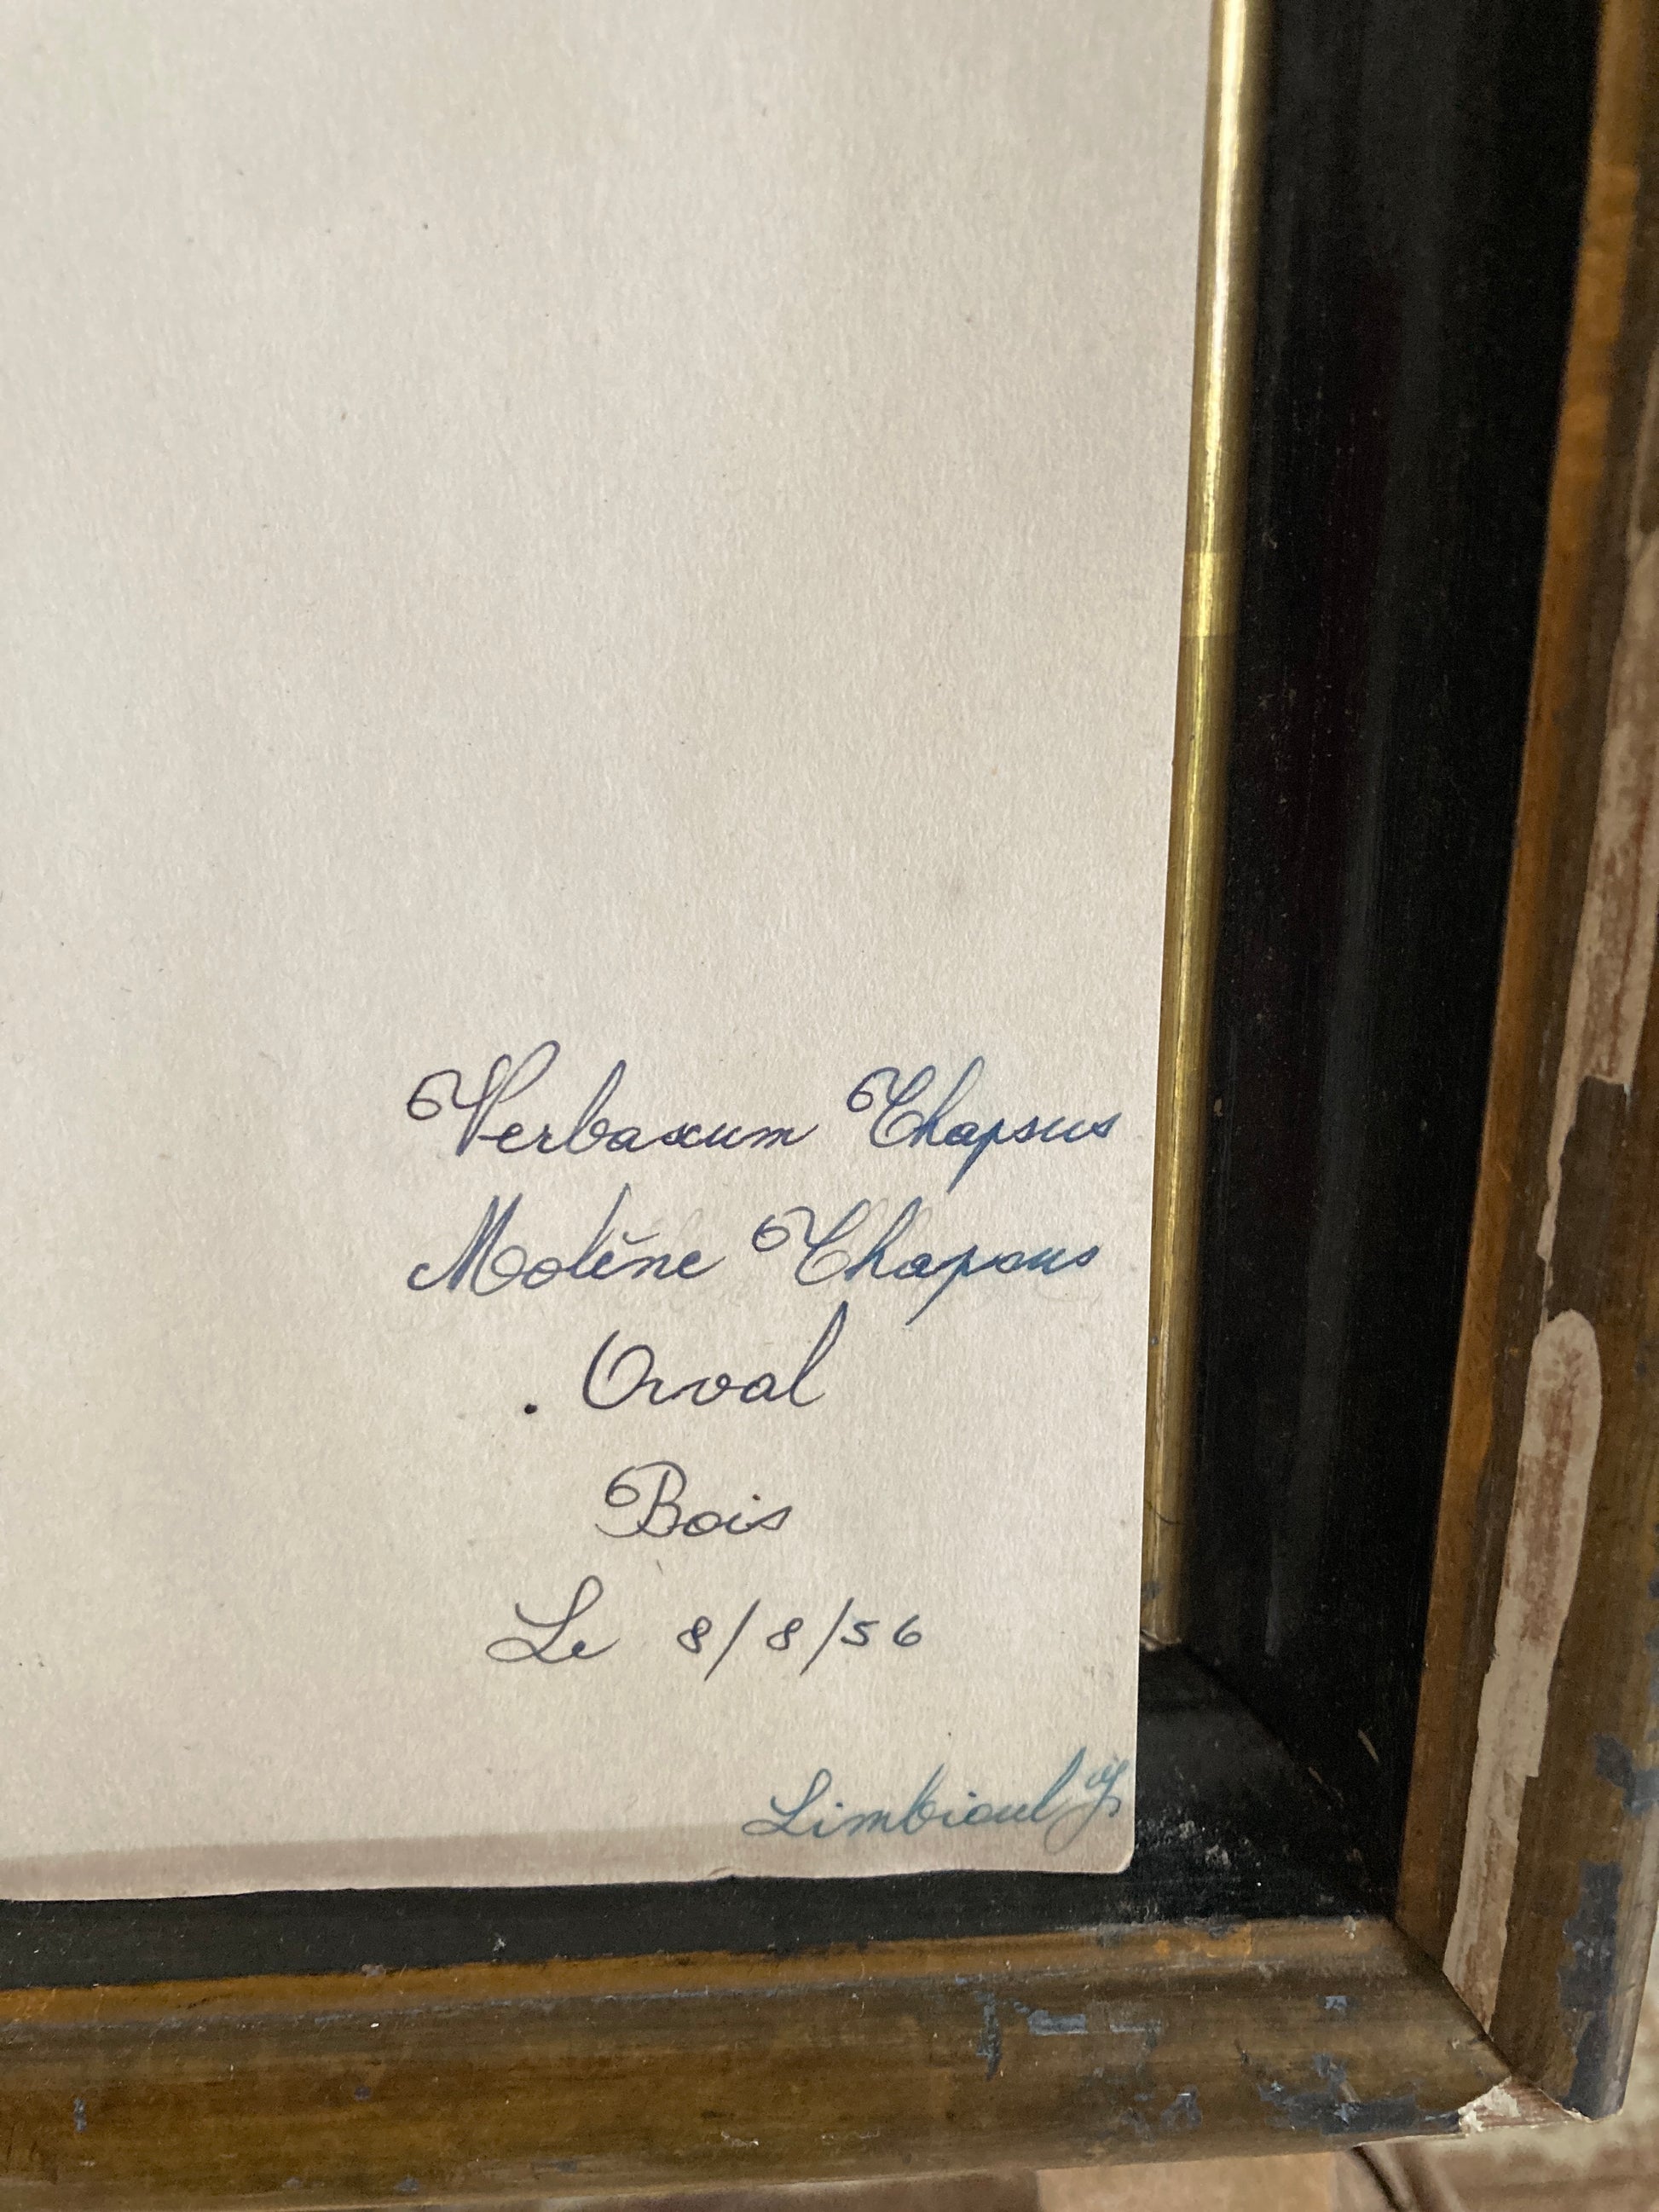 Verbascum Thapsus
Molène Thapsus
. Orval
Bois
Le 8/8/56